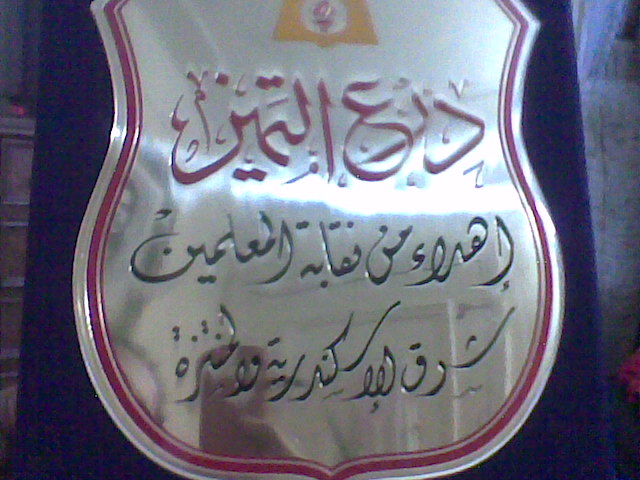 درع التميز
إهداء من نقابة المعلمين
شرق الإسكندرية والمنتزة